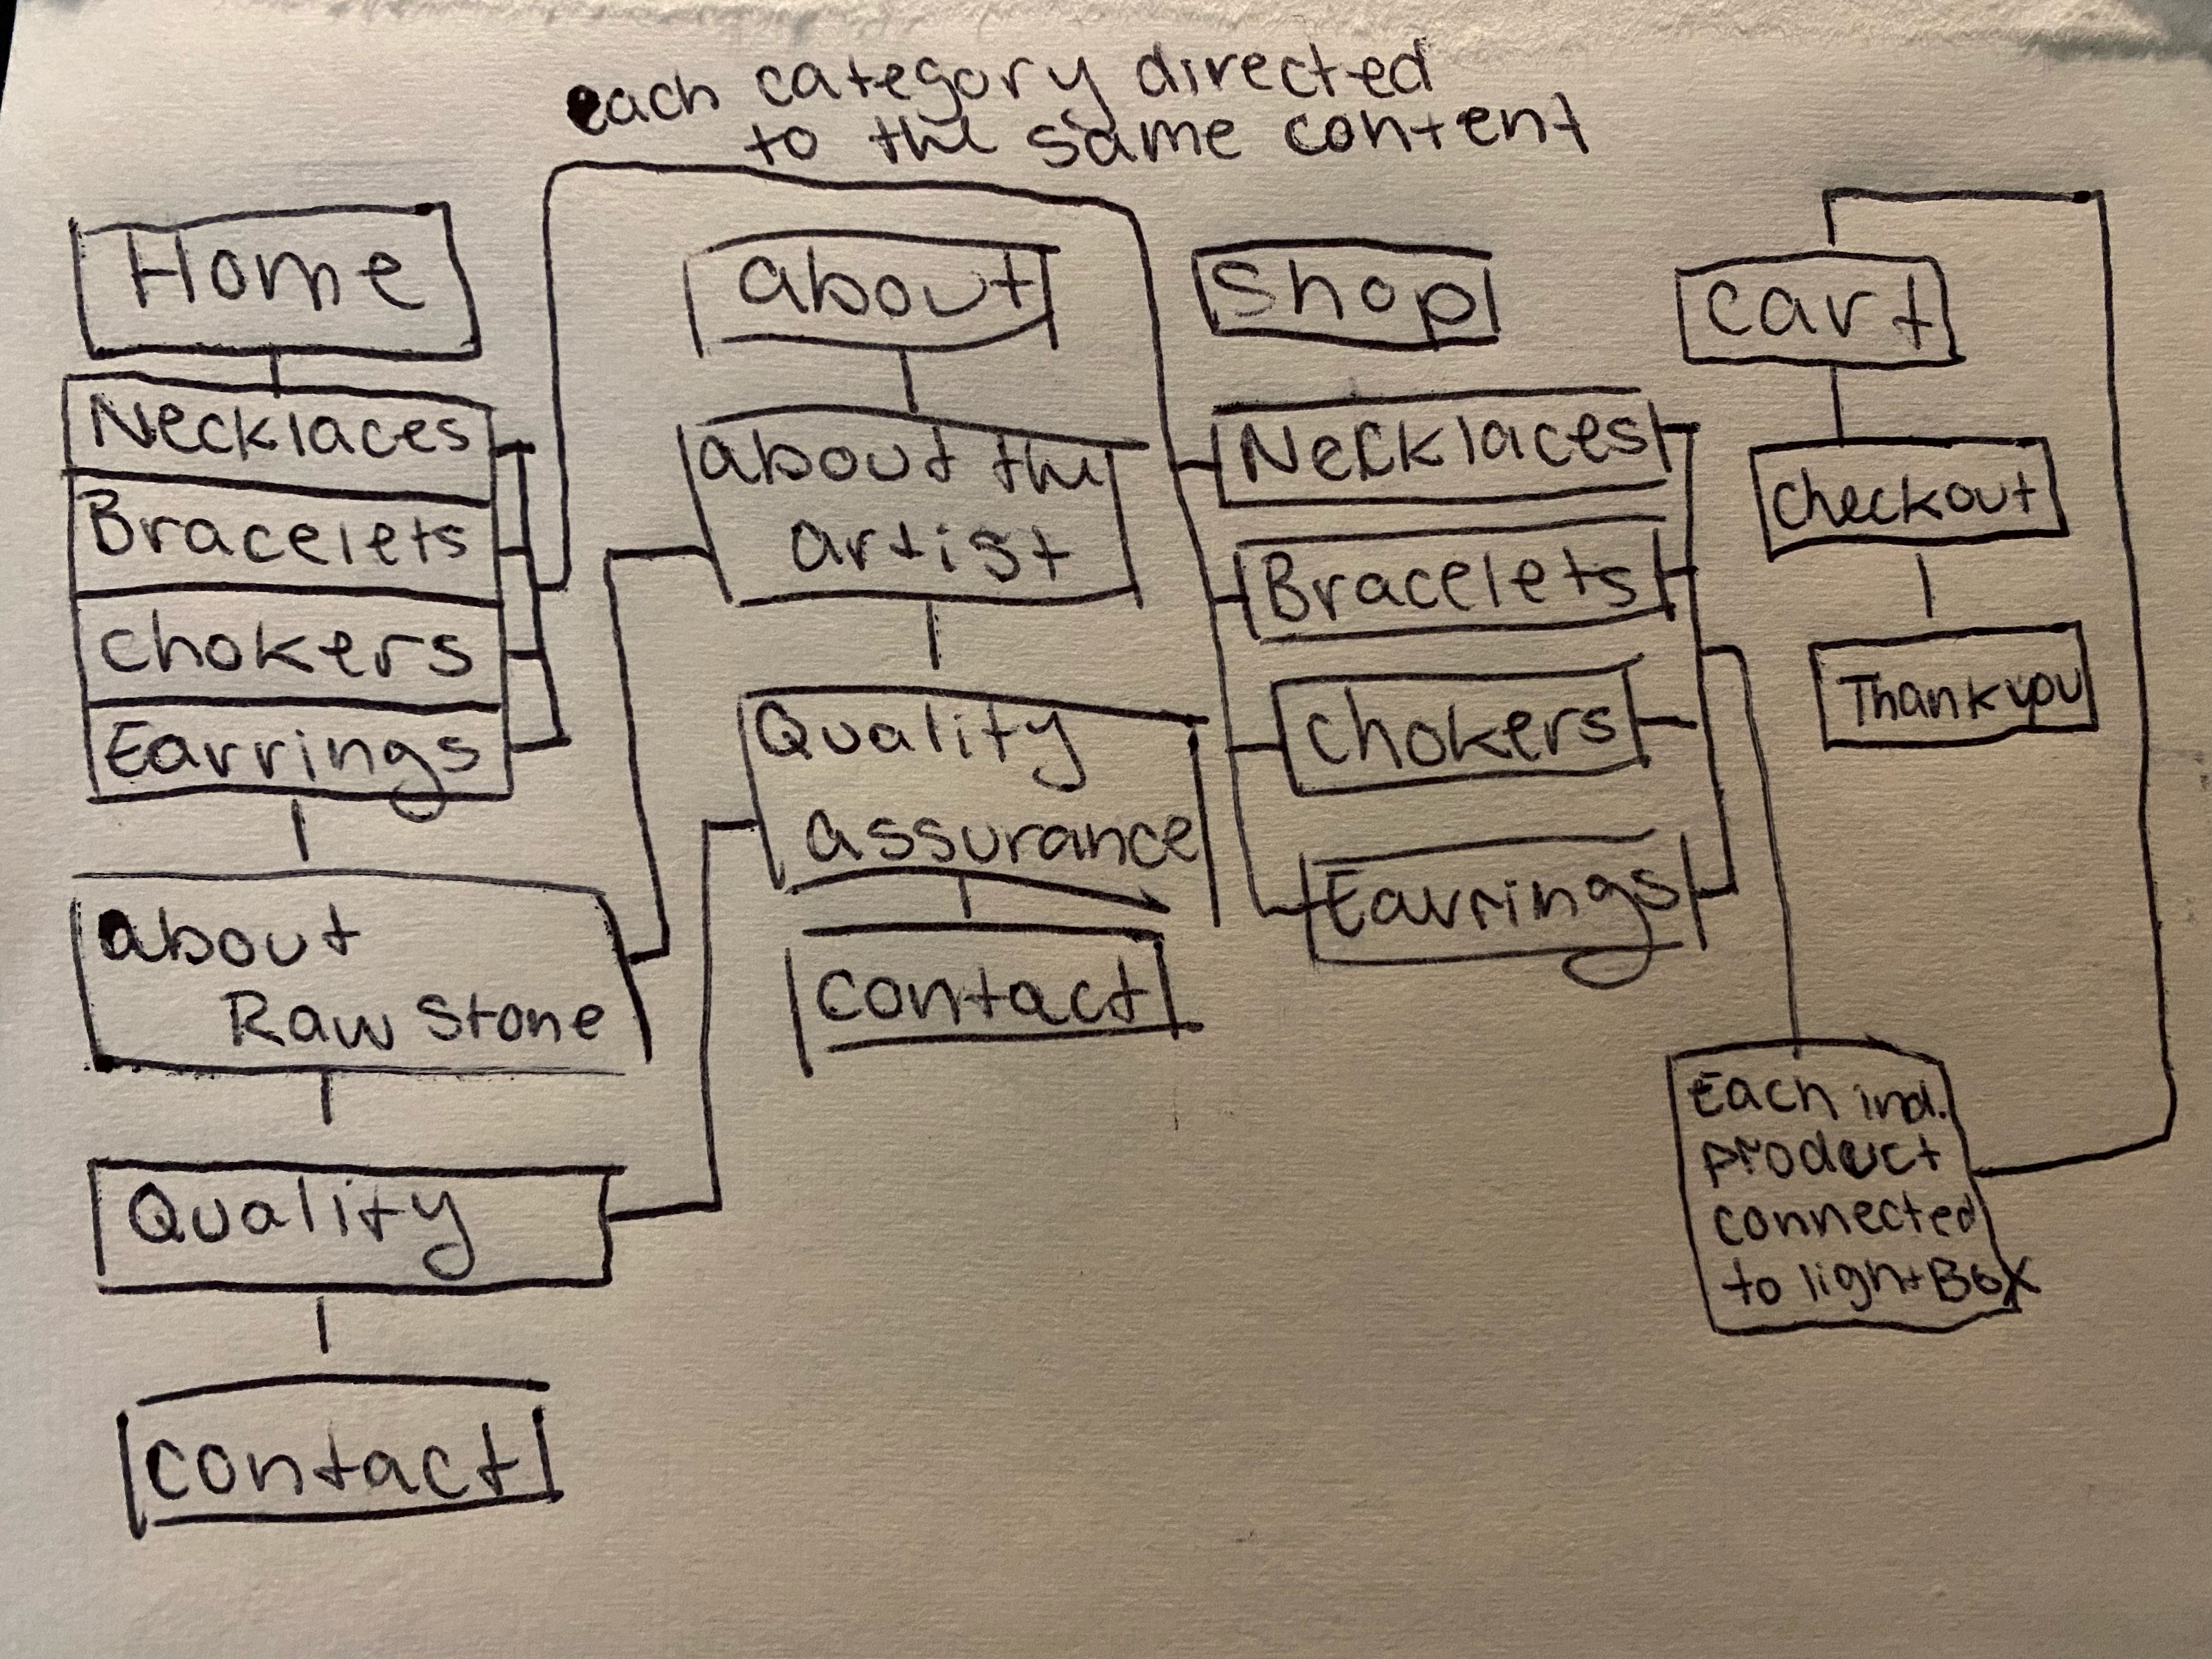 each category directed
to the same content
Home
Necklaces
Bracelets
chokers
Earrings
about
Raw Stone
Quality
contact
about
about the
artist
Quality
assurance
contact
Shop
Necklaces
Bracelets
chokers
Earrings
cart
checkout
Thank you
Each ind.
product
connected
to lightBox